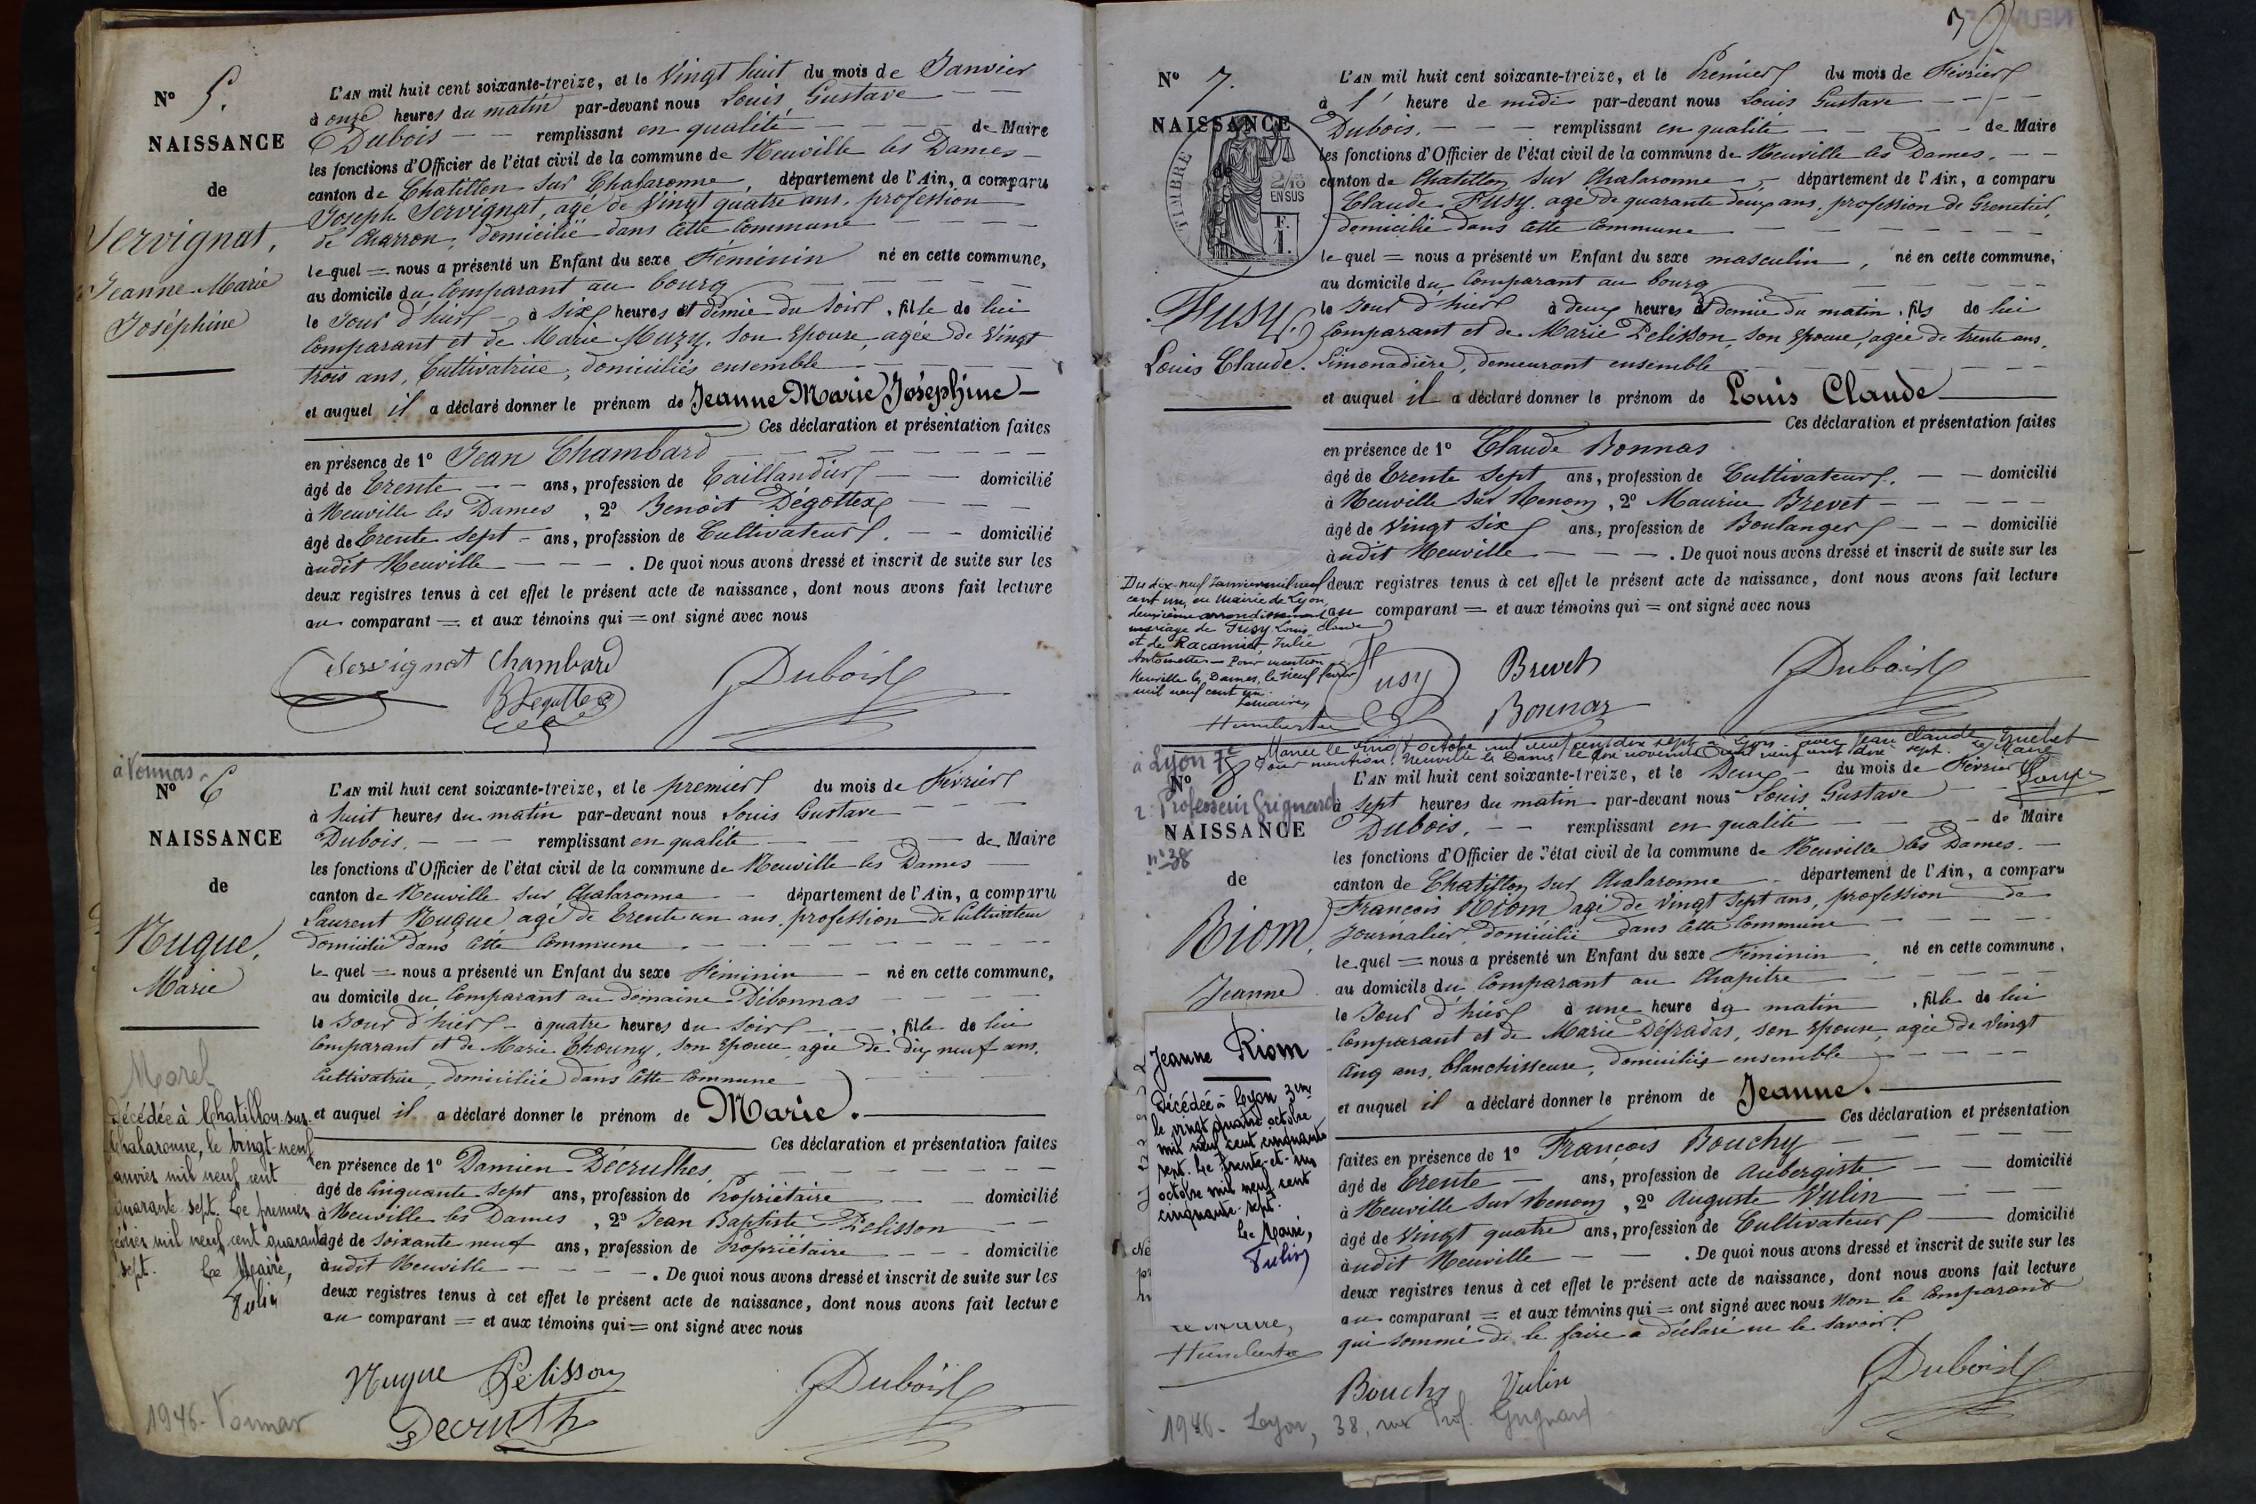 N° 5.
NAISSANCE
de
Servignat,
Jeanne Marie
Joséphine
L'AN mil huit cent soixante-treize, et le Vingt huit du mois de Janvier
à onze heures du matin par-devant nous Louis Gustave
Dubois remplissant en qualité de Maire
les fonctions d'Officier de l'état civil de la commune de Neuville les Dames
canton de Chatillon sur Chalaronne, département de l'Ain, a comparu
Joseph Servignat, agé de Vingt quatre ans, profession
de Charron, domicilié dans cette Commune
lequel = nous a présenté un Enfant du sexe Féminin né en cette commune,
au domicile du Comparant au bourg
le Jour d'hier à six heures et demie du Soir, fille de lui
Comparant et de Marie Muzy, son Epouse, agée de Vingt
trois ans, Cultivatrice, domiciliés ensemble
et auquel il a déclaré donner le prénom de Jeanne Marie Joséphine
Ces déclaration et présentation faites
en présence de 1° Jean Chambard
âgé de Trente ans, profession de Taillandier domicilié
à Neuville les Dames, 2° Benoit Dégottex
âgé de Trente sept ans, profession de Cultivateur. domicilié
àudit Neuville. De quoi nous avons dressé et inscrit de suite sur les
deux registres tenus à cet effet le présent acte de naissance, dont nous avons fait lecture
au comparant = et aux témoins qui = ont signé avec nous
Servignat Chambard Dubois
BDegottex
à Vonnas
N° 6
NAISSANCE
de
Nugue,
Marie
L'AN mil huit cent soixante-treize, et le premier du mois de Février
à huit heures du matin par-devant nous Louis Gustave
Dubois. remplissant en qualité de Maire
les fonctions d'Officier de l'état civil de la commune de Neuville les Dames
canton de Neuville sur Chalaronne département de l'Ain, a comparu
Laurent Nugue, agé de Trente un ans, profession de Cultivateur
domicilié dans cette Commune
lequel = nous a présenté un Enfant du sexe Féminin né en cette commune,
au domicile du Comparant au domaine Débonnas
le Jour d'hier à quatre heures du Soir, fille de lui
Comparant et de Marie Chouny, son Epouse, agée de dix neuf ans,
Cultivatrice, domiciliée dans cette Commune
et auquel il a déclaré donner le prénom de Marie.
Ces déclaration et présentation faites
en présence de 1° Damien Décruthes,
âgé de Cinquante sept ans, profession de Propriétaire domicilié
à Neuville les Dames, 2° Jean Baptiste Pelisson
âgé de Soixante neuf ans, profession de Propriétaire domicilié
àudit Neuville. De quoi nous avons dressé et inscrit de suite sur les
deux registres tenus à cet effet le présent acte de naissance, dont nous avons fait lecture
au comparant = et aux témoins qui = ont signé avec nous
Nugue Pelisson Dubois
Decruth
Morel
Décédée à Chatillon-sur-
Chalaronne, le vingt-neuf
janvier mil neuf cent
quarante sept. Le premier
février mil neuf cent quarante
sept. Le Maire,
Vulin
1946 - Vonnas
79
N° 7.
NAISSANCE
de
TIMBRE
2/10
EN SUS
Fusy,
Louis Claude.
L'AN mil huit cent soixante-treize, et le Premier du mois de Février
à l' heure de midi par-devant nous Louis Gustave
Dubois. remplissant en qualité de Maire
les fonctions d'Officier de l'état civil de la commune de Neuville les Dames.
canton de Chatillon sur Chalaronne, département de l'Ain, a comparu
Claude Fusy, agé de quarante deux ans, profession de Grenetier,
domicilié dans cette Commune
lequel = nous a présenté un Enfant du sexe masculin, né en cette commune,
au domicile du Comparant au bourg
le Jour d'hier à deux heures et demie du matin, fils de lui
Comparant et de Marie Pelisson, son Epouse, agée de trente ans,
Limonadière, demeurant ensemble
et auquel il a déclaré donner le prénom de Louis Claude
Ces déclaration et présentation faites
en présence de 1° Claude Bonnas
âgé de Trente sept ans, profession de Cultivateur. domicilié
à Neuville sur Renom, 2° Maurice Brevet
âgé de Vingt six ans, profession de Boulanger domicilié
àudit Neuville. De quoi nous avons dressé et inscrit de suite sur les
deux registres tenus à cet effet le présent acte de naissance, dont nous avons fait lecture
au comparant = et aux témoins qui = ont signé avec nous
Du dix-neuf Janvier mil neuf
cent un, en Mairie de Lyon,
deuxième arrondissement
mariage de Fusy Louis Claude
et de Racamier Julie
Antoinette - Pour mention
Neuville les Dames, le neuf février
mil neuf cent un.
Le maire,
Humbert
Fusy Brevet Dubois
Bonnas
Mariée le vingt octobre mil neuf cent dix sept à Lyon avec Jean Claude Guebet
Pour mention. Neuville les Dames le novembre mil neuf cent dix sept. Le Maire
à Lyon 7e
N° 8
r. Professeur Grignard
NAISSANCE
n° 38
de
Riom,
Jeanne
L'AN mil huit cent soixante-treize, et le Deux du mois de Février
à sept heures du matin par-devant nous Louis Gustave
Dubois. remplissant en qualité de Maire
les fonctions d'Officier de l'état civil de la commune de Neuville les Dames.
canton de Chatillon sur Chalaronne département de l'Ain, a comparu
François Riom, agé de Vingt sept ans, profession de
Journalier, domicilié dans cette Commune
lequel = nous a présenté un Enfant du sexe Féminin, né en cette commune,
au domicile du Comparant au Chapitre
le Jour d'hier à une heure du matin, fille de lui
Comparant et de Marie Défradas, son Epouse, agée de Vingt
Cinq ans, blanchisseuse, domiciliés ensemble
et auquel il a déclaré donner le prénom de Jeanne.
Ces déclaration et présentation
faites en présence de 1° François Bouchy
âgé de Trente ans, profession de Aubergiste domicilié
à Neuville sur Renom, 2° Auguste Vulin
âgé de Vingt quatre ans, profession de Cultivateur domicilié
àudit Neuville. De quoi nous avons dressé et inscrit de suite sur les
deux registres tenus à cet effet le présent acte de naissance, dont nous avons fait lecture
au comparant = et aux témoins qui = ont signé avec nous Non le Comparant
qui sommé de le faire a déclaré ne le savoir.
Jeanne Riom
Décédée à Lyon 3me
le vingt quatre octobre
mil neuf cent cinquante
sept. Le trente-et-un
octobre mil neuf cent
cinquante-sept.
Le Maire,
Vulin
Le Maire,
Humbert
Bouchy Vulin Dubois
1946 - Lyon, 38, rue Prof. Grignard